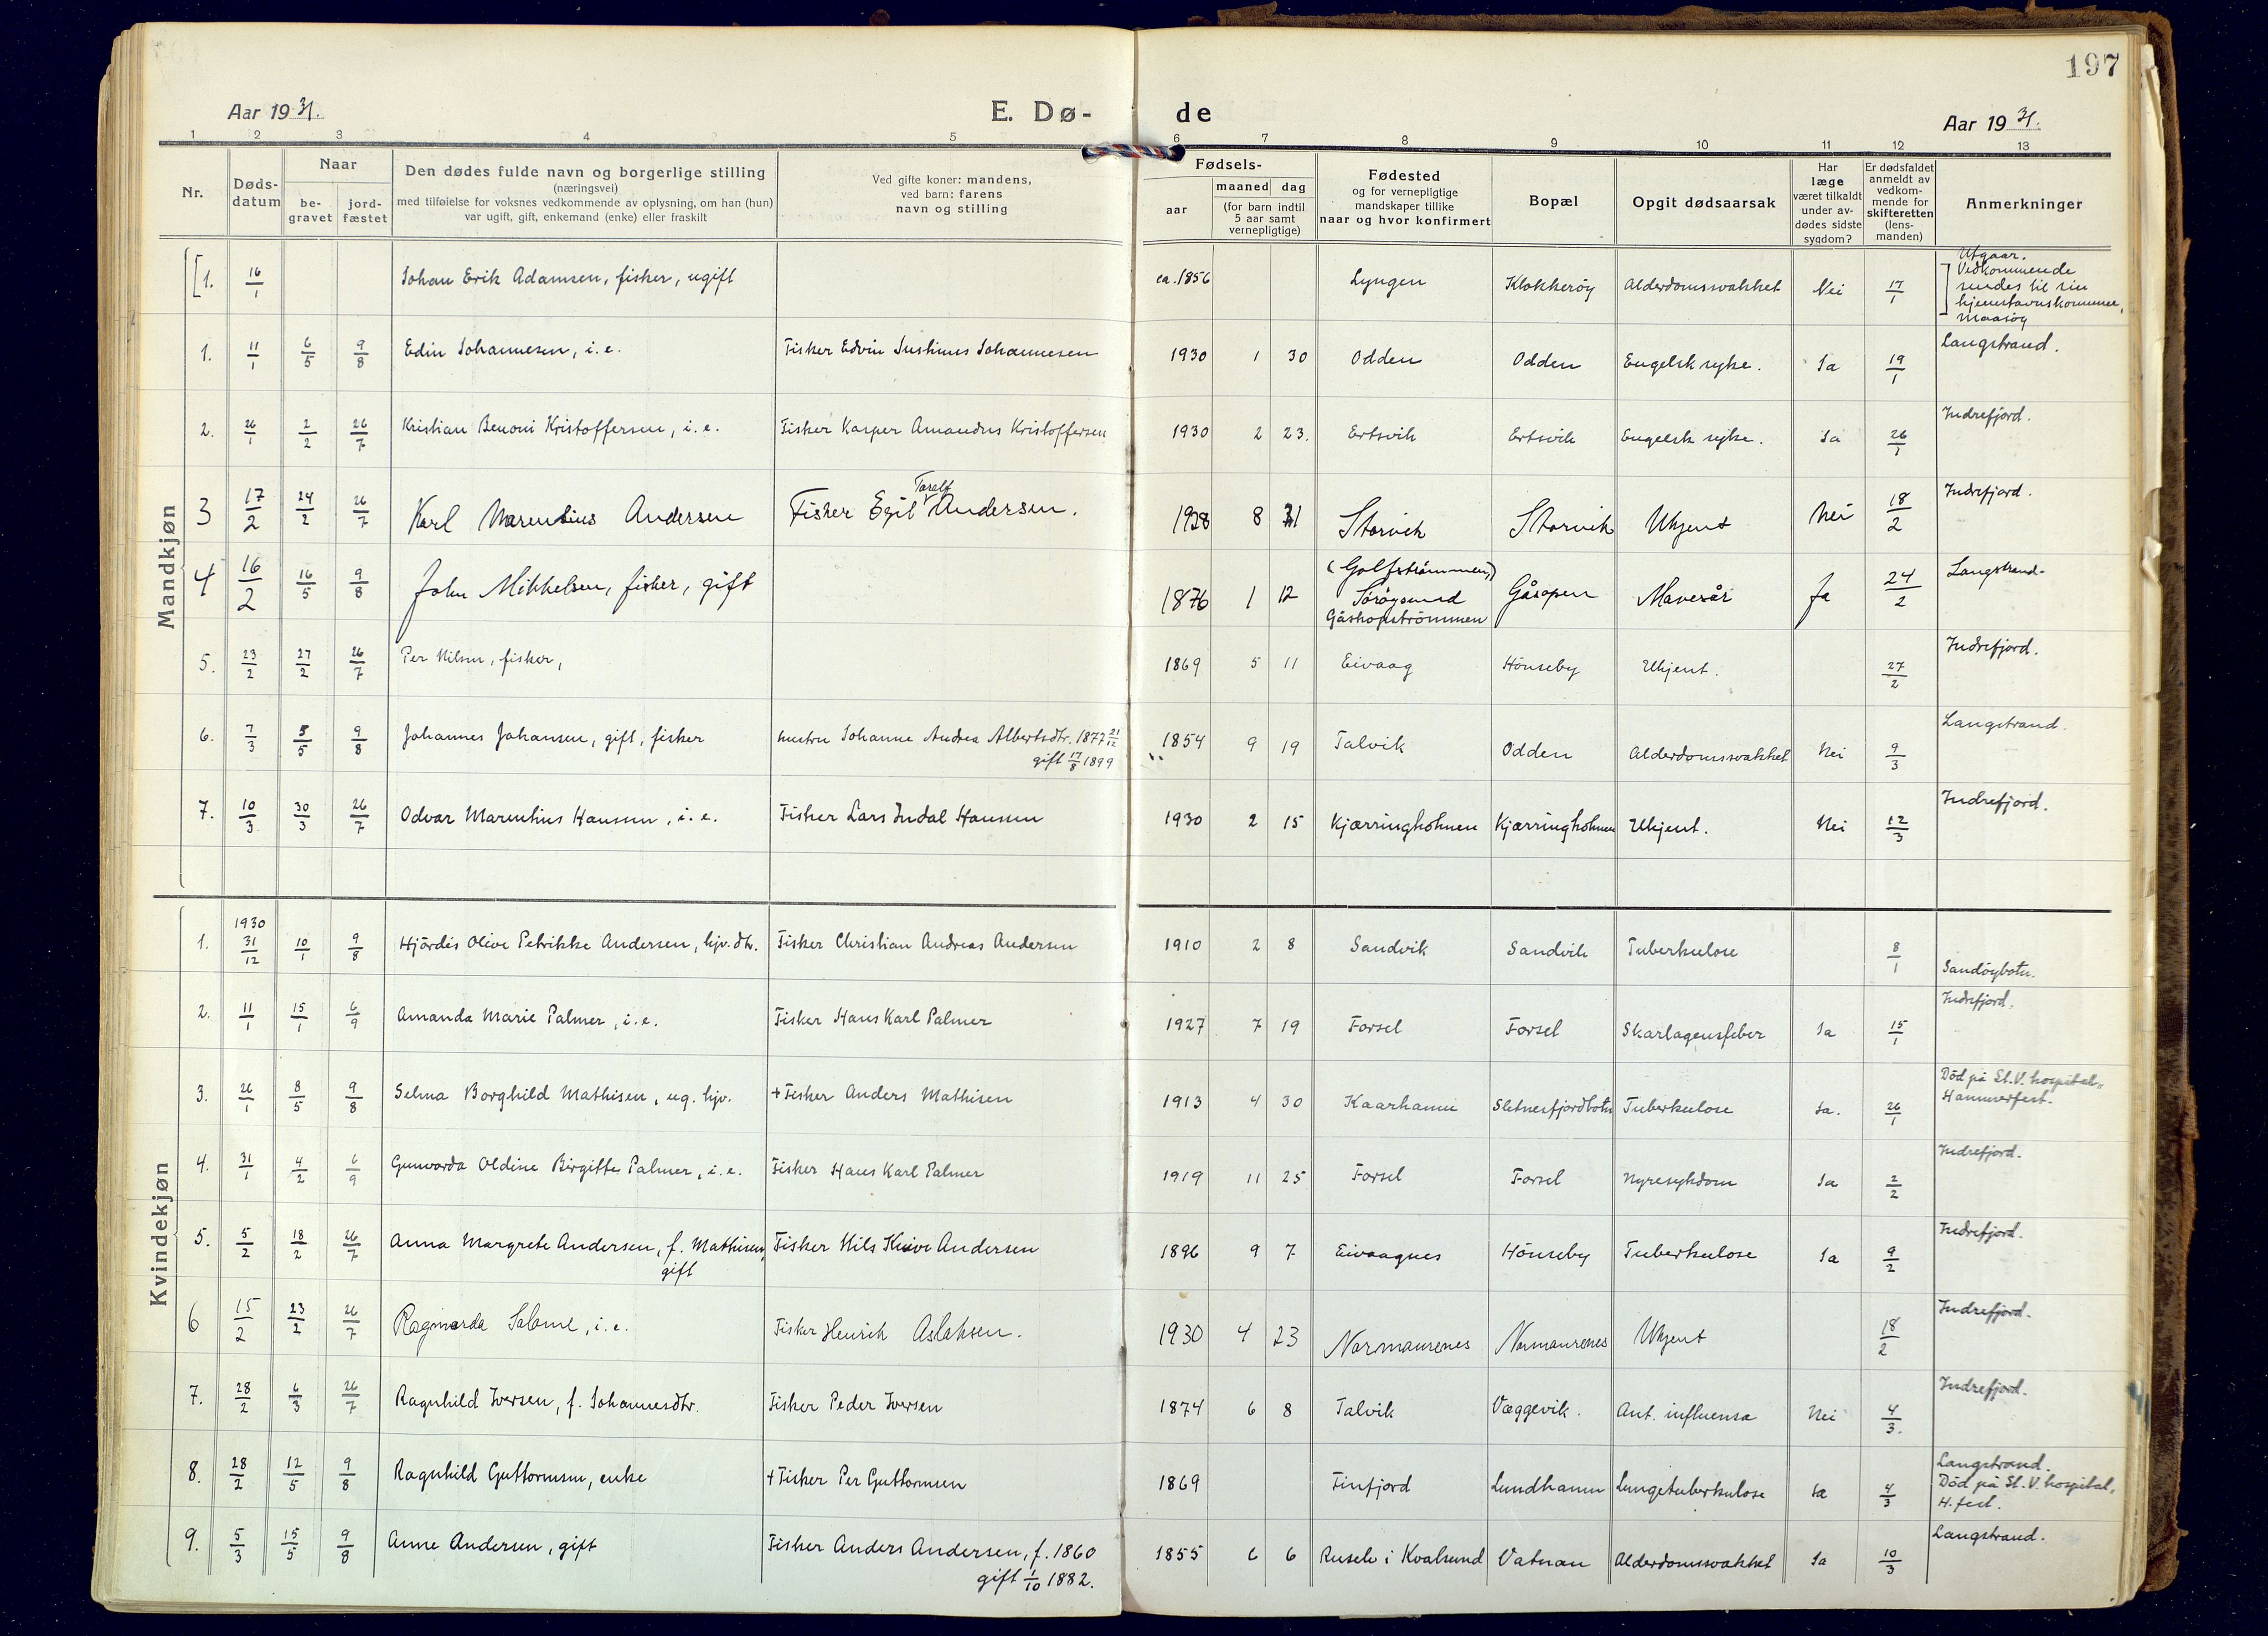 197
Aar 1931.
E. Dø-
de
Aar 1931.
1 2 3 4 5 6 7 8 9 10 11 12 13
Nr.
Døds-
datum
Naar
be-
gravet
jord-
fæstet
Den dødes fulde navn og borgerlige stilling
(næringsvei)
med tilføielse for voksnes vedkommende av oplysning, om han (hun)
var ugift, gift, enkemand (enke) eller fraskilt
Ved gifte koner: mandens,
ved barn: farens
navn og stilling
Fødsels-
aar
maaned dag
(for barn indtil
5 aar samt
vernepligtige)
Fødested
og for vernepligtige
mandskaper tillike
naar og hvor konfirmert
Bopæl
Opgit dødsaarsak
Har
læge
været tilkaldt
under av-
dødes sidste
sygdom?
Er dødsfaldet
anmeldt av
vedkom-
mende for
skifteretten
(lens-
manden)
Anmerkninger
Mandkjøn
[1. 16/1 Johan Erik Adamsen, fisker, ugift ca. 1856 Lyngen Klokkerøy Alderdomssvakhet Nei 17/1
Utgaar.
Vedkommende
sendes til sin
hjemstavnskommune,
Maasøy
1. 11/1 6/5 9/8 Edin Johannesen, i.e. Fisker Edvin Justinus Johannesen 1930 1 30 Odden Odden Engelsk syke. Ja 19/1 Langstrand.
2. 26/1 2/2 26/7 Kristian Benoni Kristoffersen, i.e. Fisker Kasper Amandus Kristoffersen 1930 2 23. Ertsvik Ertsvik Engelsk syke. Ja 26/1 Indrefjord.
Toralf
3 17/2 24/2 26/7 Karl Marentius Andersen Fisker Egil Andersen. 1928 8 31 Storvik Storvik Ukjent Nei 18/2 Indrefjord.
4 16/2 16/5 9/8 John Mikkelsen, fisker, gift 1876 1 12 (Golfstrømmen) Gåsopen Mavesår Ja 24/2 Langstrand.
Sørøysund
Gåshopstrømmen
5. 23/2 27/2 26/7 Per Nilsen, fisker, 1869 5 11 Eivaag Hönseby Ukjent. 27/2 Indrefjord.
6. 7/3 5/5 9/8 Johannes Johansen, gift, fisker hustru Johanne Andrea Albertsdtr. 1877 21/12 1854 9 19 Talvik Odden Alderdomssvakhet Nei 9/3 Langstrand.
gift 17/8 1899
7. 10/3 30/3 26/7 Odvar Marentius Hansen, i.e. Fisker Lars Indal Hansen 1930 2 15 Kjærringholmen Kjærringholmen Ukjent. Nei 12/3 Indrefjord.
Kvindekjøn
1930
1. 31/12 10/1 9/8 Hjördis Olive Petrikke Andersen, hjv. dtr. Fisker Christian Andreas Andersen 1910 2 8 Sandvik Sandvik Tuberkulose 8/1 Sandöybotn.
2. 11/1 15/1 6/9 Amanda Marie Palmer, i.e. Fisker Hans Karl Palmer 1927 7 19 Forsel Forsel Skarlagensfeber Ja 15/1 Indrefjord.
3. 26/1 8/5 9/8 Selma Borghild Mathisen, ug. hjv. +Fisker Anders Mathisen 1913 4 30 Kaarhamn Sletnesfjordbotn Tuberkulose Ja. 26/1 Död på St. V. hospital,
Hammerfest.
4. 31/1 4/2 6/9 Gunvorda Oldine Birgitte Palmer, i.e. Fisker Hans Karl Palmer 1919 11 25 Forsel Forsel Nyresykdom Ja 2/2 Indrefjord.
5. 5/2 18/2 26/7 Anna Margrete Andersen, f. Mathisen, Fisker Nils Andersen 1896 9 7 Eivaagnes Hönseby Tuberkulose Ja 9/2 Indrefjord.
gift
6 15/2 23/2 26/7 Ragnvarda Salome, i.e. Fisker Henrik Aslaksen. 1930 4 23 Normannsnes Normannsnes Ukjent 18/2 Indrefjord.
7. 28/2 6/3 26/7 Ragnhild Iversen, f. Johannesdtr. Fisker Peder Iversen 1874 6 8 Talvik Væggevik. Ant. influensa Nei 4/3. Indrefjord.
8. 28/2 12/5 9/8 Ragnhild Guttormsen, enke +Fisker Per Guttormsen 1869 Finfjord Lundhamn Lungetuberkulose Ja 4/3 Langstrand.
Död på St. V. hospital,
H.fest.
9. 5/3 15/5 9/8 Anne Andersen, gift Fisker Anders Andersen, f. 1860 1855 6 6 i Kvalsund Vatnan Alderdomssvakhet Ja 10/3 Langstrand.
gift 1/10 1882.